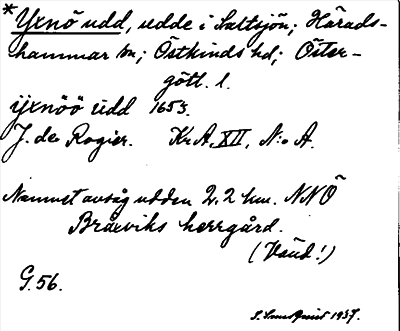 *Yxnö udd, udde i Saltsjön; Härads-
hammar sn; Östkinds hd; Öster-
götl. l.
ijxnöö udd 1653.
J. de Rogier. Kr A, XII, N:o A.
Namnet avsåg udden 2,2 km. NNÖ
Bråxviks herrgård.
(Vänd!)
G. 56.
1937.